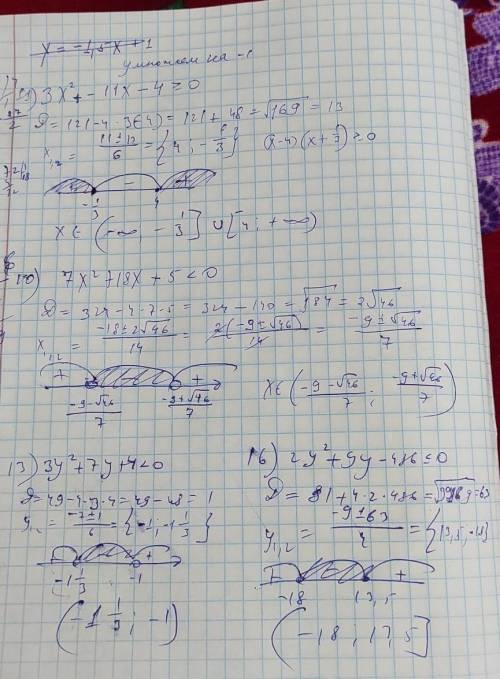 y = -1,5x + 1
умножем на -1
1) 3x² - 11x - 4 ≥ 0
D = 121 - 4 · 3(-4) = 121 + 48 = √169 = 13
x₁,₂ = (11 ± 13)/6 = {4; -1/3} (x-4)(x + 1/3) ≥ 0
- +
-1/3 4
x ∈ (-∞; -1/3] ∪ [4; +∞)
10) 7x² + 18x + 5 < 0
D = 324 - 4 · 7 · 5 = 324 - 140 = √184 = 2√46
x₁,₂ = (-18 ± 2√46)/14 = 2(-9 ± √46)/14 = (-9 ± √46)/7
+ +
(-9 - √46)/7 (-9 + √46)/7
x ∈ ((-9 - √46)/7 ; (-9 + √46)/7)
13) 3y² + 7y + 4 < 0
D = 49 - 4 · 3 · 4 = 49 - 48 = 1
y₁,₂ = (-7 ± 1)/6 = {-1; -1 1/3}
+ +
-1 1/3 -1
(-1 1/3 ; -1)
16) 2y² + 9y - 486 ≤ 0
D = 81 + 4 · 2 · 486 = √3969 = 63
y₁,₂ = (-9 ± 63)/4 = {13,5; -18}
+ +
-18 13,5
(-18 ; 13,5]